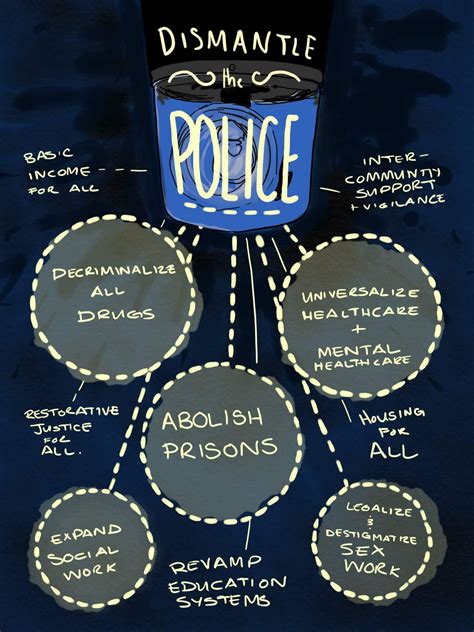 DISMANTLE
the
POLICE
BASIC
INCOME
FOR ALL
INTER-
COMMUNITY
SUPPORT
+ VIGILANCE
DECRIMINALIZE
ALL
DRUGS
UNIVERSALIZE
HEALTHCARE
+
MENTAL
HEALTHCARE
RESTORATIVE
JUSTICE
FOR
ALL.
ABOLISH
PRISONS
HOUSING
FOR
ALL
EXPAND
SOCIAL
WORK
REVAMP
EDUCATION
SYSTEMS
LEGALIZE
&
DESTIGMATIZE
SEX
WORK